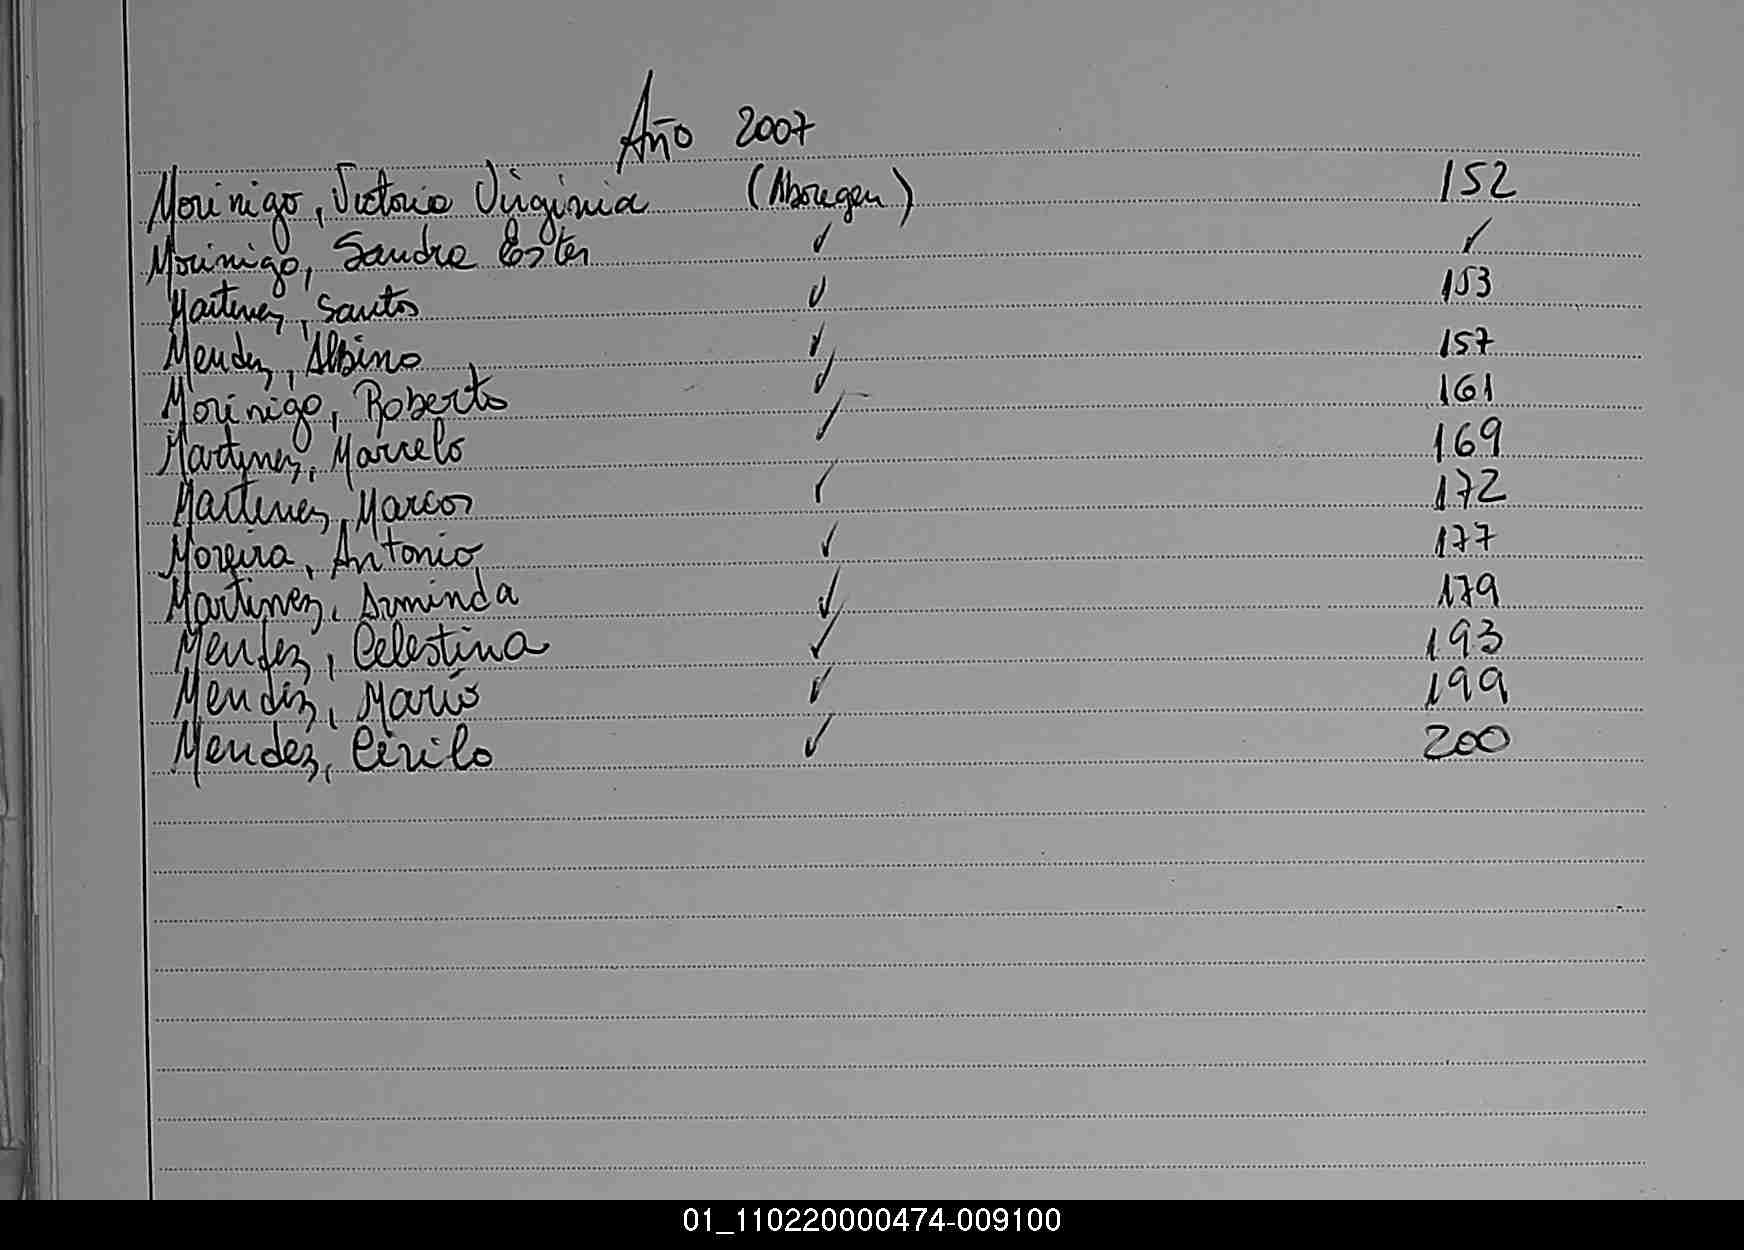 Año 2007
Morinigo, Victoria Virginia (Aborigen) 152
Morinigo, Sandra Ester ✓ ✓
Martinez, Santos ✓ 153
Mendez, Albino ✓ 157
Morinigo, Roberto ✓ 161
Martinez, Marcelo ✓ 169
Martinez, Marcos ✓ 172
Moreira, Antonio ✓ 177
Martinez, Arminda ✓ 179
Mendez, Celestina ✓ 193
Mendez, Mario ✓ 199
Mendez, Cirilo ✓ 200
01_110220000474-009100